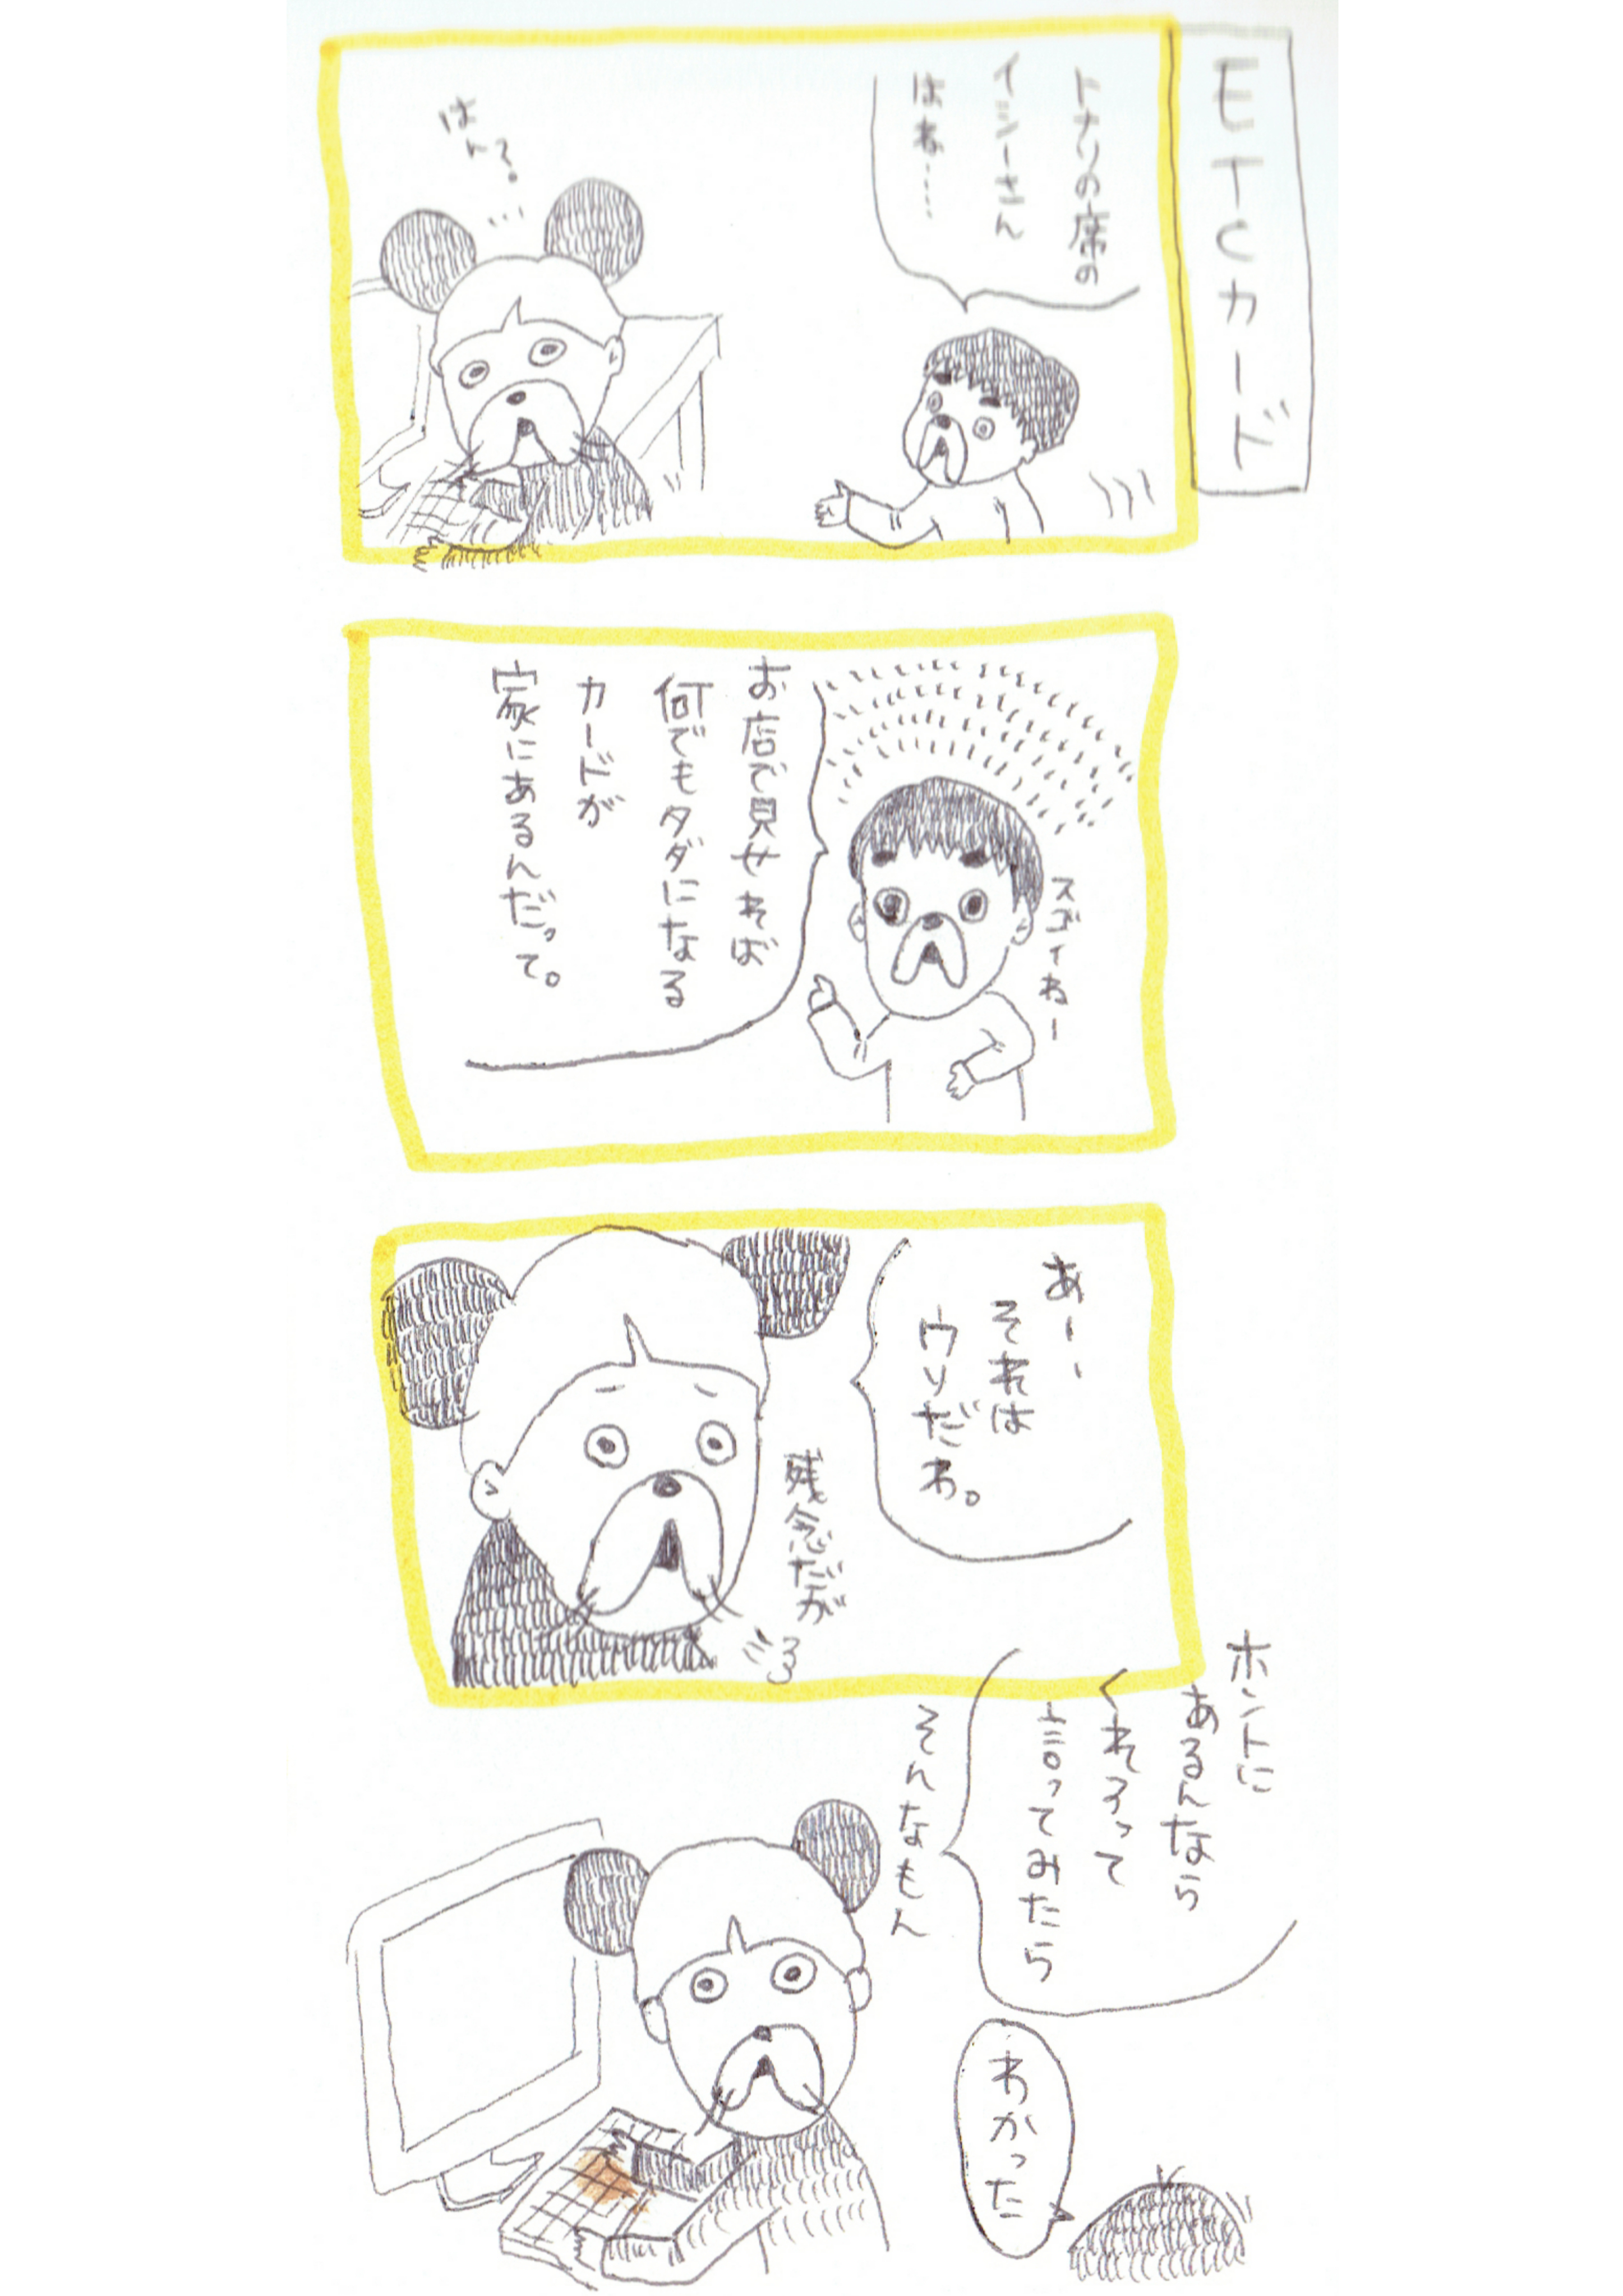 ETCカード
トナリの席の
イシーさん
はね……
はん？
スゴイねー
お店で見せれば
何でもタダになる
カードが
家にあるんだって。
あー、
それは
ウソだわ。
残念だが
ホントに
あるんなら
くれるって
言ってみたら
そんなもん
わかった